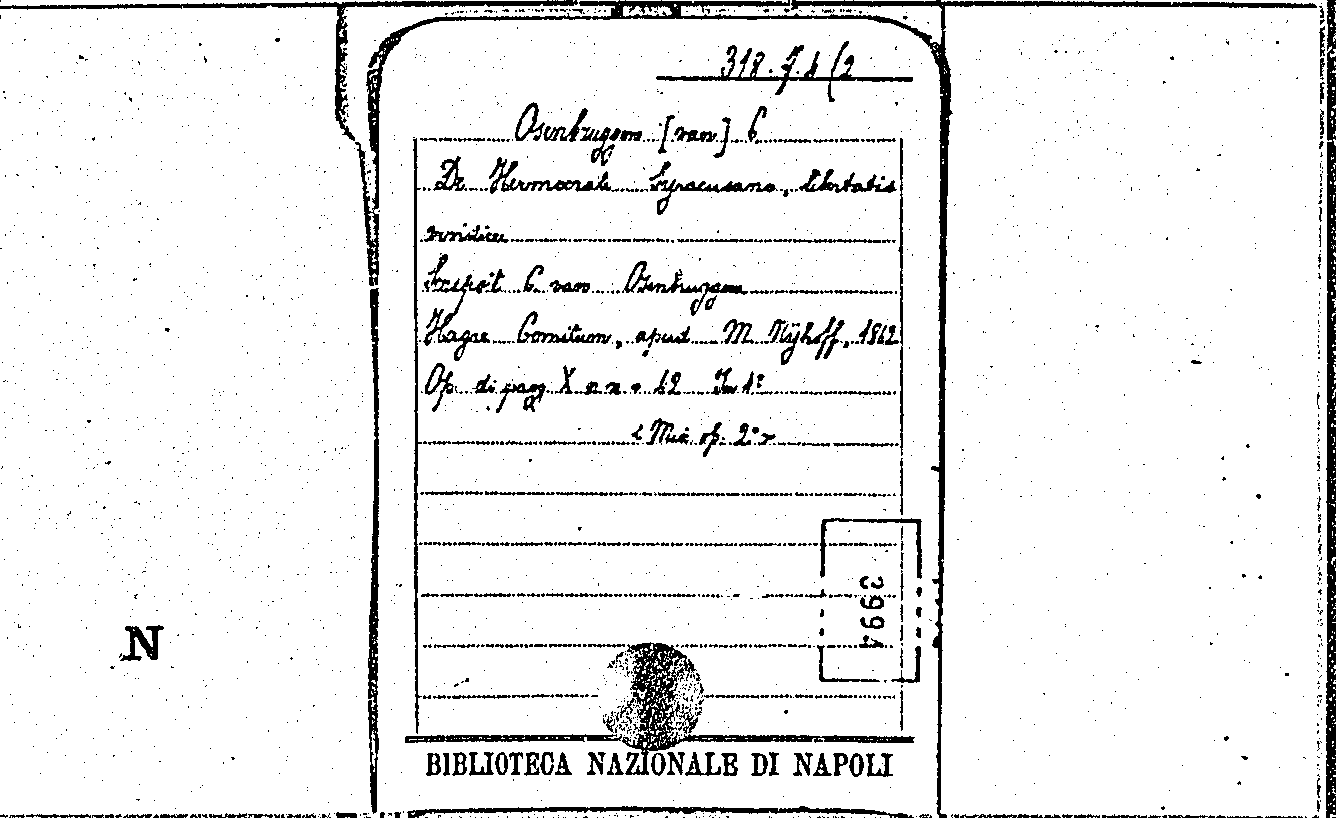 318. J. 4 (2
Osenbruggen [van] C
De Hermocrate Syracusano, libertatis
vindice
Scripsit C. van Osenbruggen
Hagae Comitum, apud M Nÿhoff, 1862
Op. di pag X n n 42 In 4º
Misc. op. 2º
3994
N
BIBLIOTECA NAZIONALE DI NAPOLI